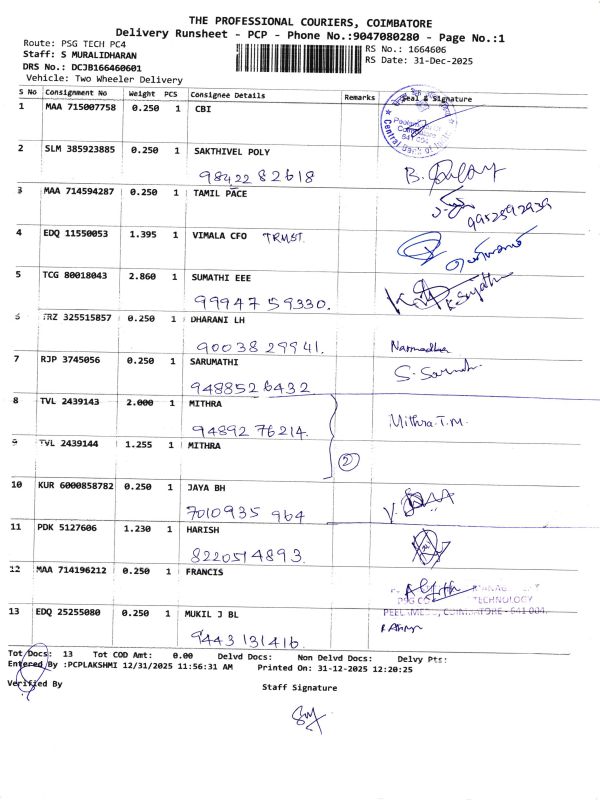 THE PROFESSIONAL COURIERS, COIMBATORE
Delivery Runsheet - PCP - Phone No.:9047080280 - Page No.:1
Route: PSG TECH PC4
RS No.: 1664606
Staff: S MURALIDHARAN
RS Date: 31-Dec-2025
DRS No.: DCJB166460601
Vehicle: Two Wheeler Delivery
S No Consignment No Weight PCS Consignee Details Remarks Seal & Signature
1 MAA 715007758 0.250 1 CBI
Central Bank of India
2 SLM 385923885 0.250 1 SAKTHIVEL POLY
98422 82618
3 MAA 714594287 0.250 1 TAMIL PACE
9952592939
4 EDQ 11550053 1.395 1 VIMALA CFO TRUST
5 TCG 80018043 2.860 1 SUMATHI EEE
99947 59330.
6 TRZ 325515857 0.250 1 DHARANI LH
90038 29941. Narmadha
7 RJP 3745056 0.250 1 SARUMATHI
9488526432
8 TVL 2439143 2.000 1 MITHRA
94892 76214. Mithra.T.M.
9 TVL 2439144 1.255 1 MITHRA
2
10 KUR 6000858782 0.250 1 JAYA BH
7010935 964
11 PDK 5127606 1.230 1 HARISH
8220514893.
12 MAA 714196212 0.250 1 FRANCIS
TECHNOLOGY
PEELAMEDU, COIMBATORE - 641 004.
13 EDQ 25255080 0.250 1 MUKIL J BL
9443131416.
Tot Docs: 13 Tot COD Amt: 0.00 Delvd Docs: Non Delvd Docs: Delvy Pts:
Entered By :PCPLAKSHMI 12/31/2025 11:56:31 AM Printed On: 31-12-2025 12:20:25
Verified By
Staff Signature